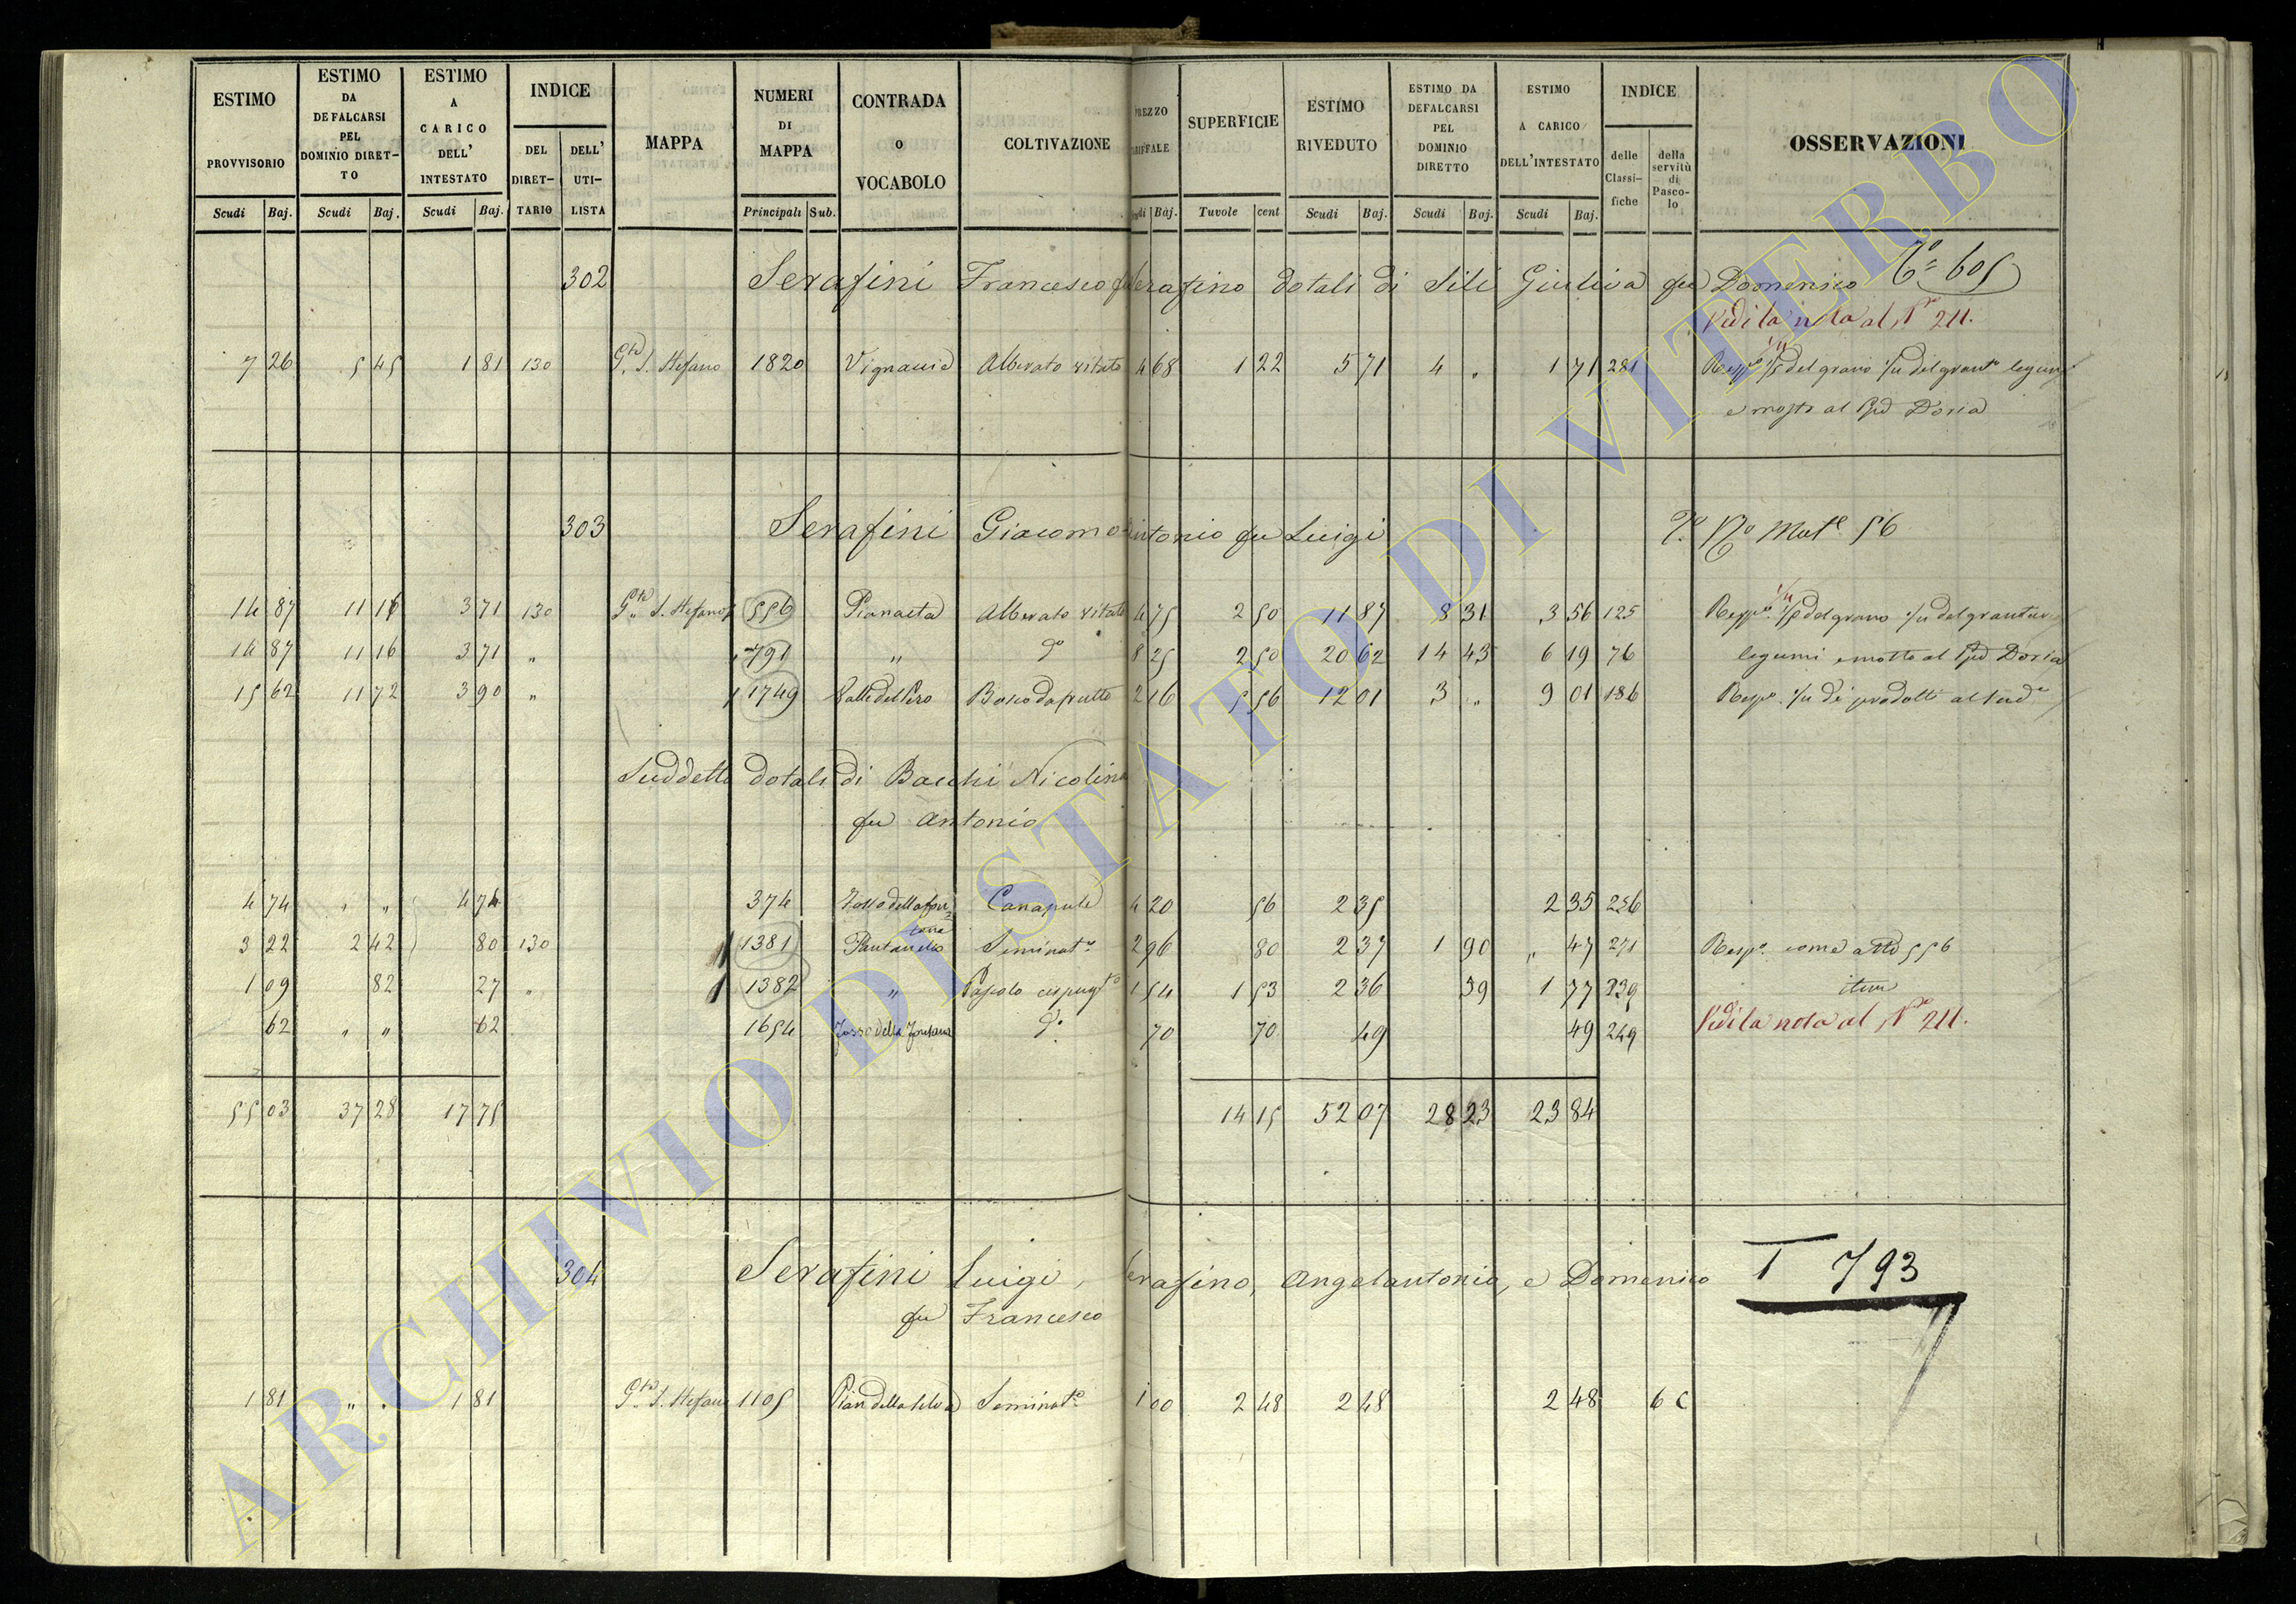 ESTIMO PROVVISORIO Scudi Baj.
ESTIMO DA DEFALCARSI PEL DOMINIO DIRET-TO Scudi Baj.
ESTIMO A CARICO DELL' INTESTATO Scudi Baj.
INDICE DEL DIRET-TARIO DELL' UTI-LISTA
MAPPA
NUMERI DI MAPPA Principali Sub.
CONTRADA O VOCABOLO
COLTIVAZIONE
PREZZO Baj.
SUPERFICIE Tuvole cent
ESTIMO RIVEDUTO Scudi Baj.
ESTIMO DA DEFALCARSI PEL DOMINIO DIRETTO Scudi Baj.
ESTIMO A CARICO DELL'INTESTATO Scudi Baj.
INDICE delle Classi-fiche della servitù di Pasco-lo
OSSERVAZIONI
302 Serafini Francesco fu Serafino dotali di Sili Giulia fu Domenico 605
Vedi la nota al N° 211.
7 26 5 45 1 81 130 S. Stefano 1820 Alberato vitato 4 68 1 22 5 71 4 „ 1 71 281 del grano
e mosto al Doria
303 Serafini Giacomo Antonio fu Luigi 56
14 87 11 16 3 71 130 S. Stefano 556 Pianaeta Alberato vitato 4 75 2 50 11 87 8 31 3 56 125 del grano
14 87 11 16 3 71 „ 791 „ d° 8 25 2 50 20 62 14 43 6 19 76 legumi e mosto al Doria
15 62 11 72 3 90 „ 1749 Valle del Pero Bosco da frutto 2 16 5 56 12 01 3 „ 9 01 186 di prodotti al
Suddetto dotali di Bacchi Nicolina
fu Antonio
4 74 „ „ 4 74 374 Fosso della fon=tana Canapule 4 20 56 2 35 2 35 256
3 22 2 42 80 130 1381 Pantanello Seminat° 2 96 80 2 37 1 90 „ 47 271 Risp. come al N° 556
1 09 82 27 „ 1382 „ Pascolo cespugt° 1 54 1 53 2 36 59 1 77 239 item
62 „ „ 62 1654 Fosso della Fontana d° 70 70 49 49 249 Vedi la nota al N° 211.
55 03 37 28 17 75 14 15 52 07 28 23 23 84
304 Serafini Luigi, Serafino, Angelantonio, e Domenico T 793
fu Francesco
1 81 „ „ 1 81 S. Stefano 1105 Pian della Selva Seminat° 1 00 2 48 2 48 2 48 6 C
ARCHIVIO DI STATO DI VITERBO